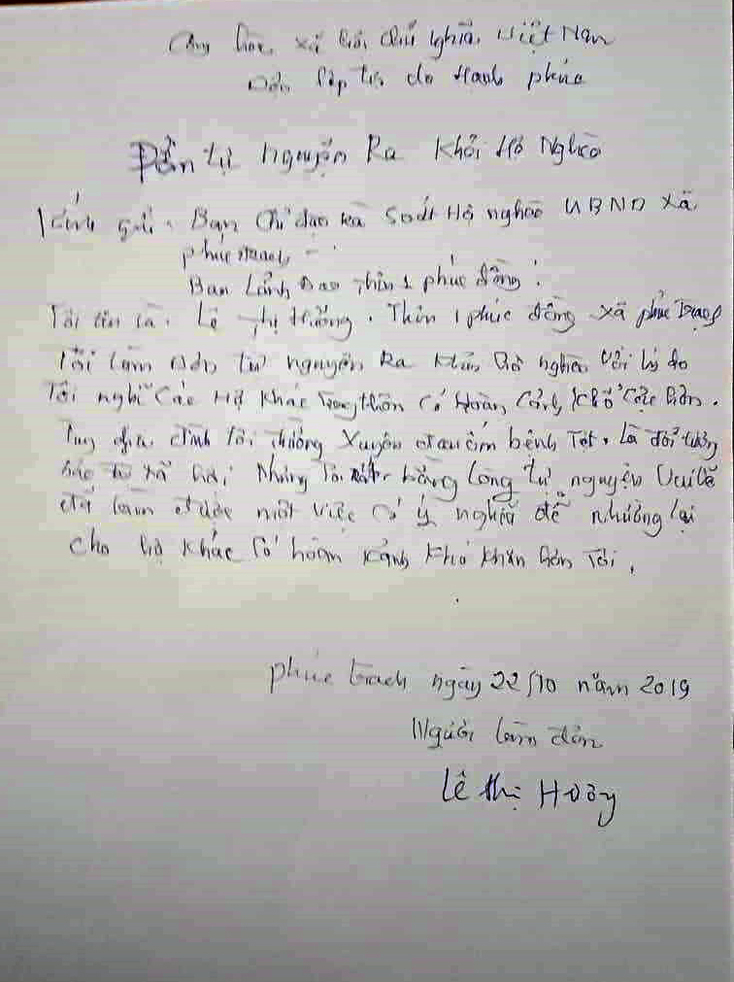 Cộng hòa xã hội chủ nghĩa Việt Nam
Độc lập tự do Hạnh phúc
Đơn tự nguyện Ra Khỏi Hộ Nghèo
Kính gửi. Ban chỉ đạo rà Soát Hộ nghèo UBND xã
phúc trạch -
Ban Lãnh Đạo Thôn 1 phúc đồng!
Tôi tên là. Lê Thị Hường. Thôn 1 phúc đồng xã phúc Trạch
Tôi làm Đơn tự nguyện Ra khỏi hộ nghèo với lý do
Tôi nghĩ Các Hộ khác trong thôn có Hoàn Cảnh khổ cực hơn.
Tuy gia đình tôi thường Xuyên đau ốm bệnh Tật. Là đối tượng
bảo trợ xã hội Nhưng Tôi rất bằng lòng tự nguyện Vui vẻ
đã làm được một việc có ý nghĩa để nhường lại
cho hộ khác có hoàn cảnh khó khăn hơn Tôi.
phúc trạch ngày 22/10 năm 2019
Người làm đơn
Lê Thị Hường